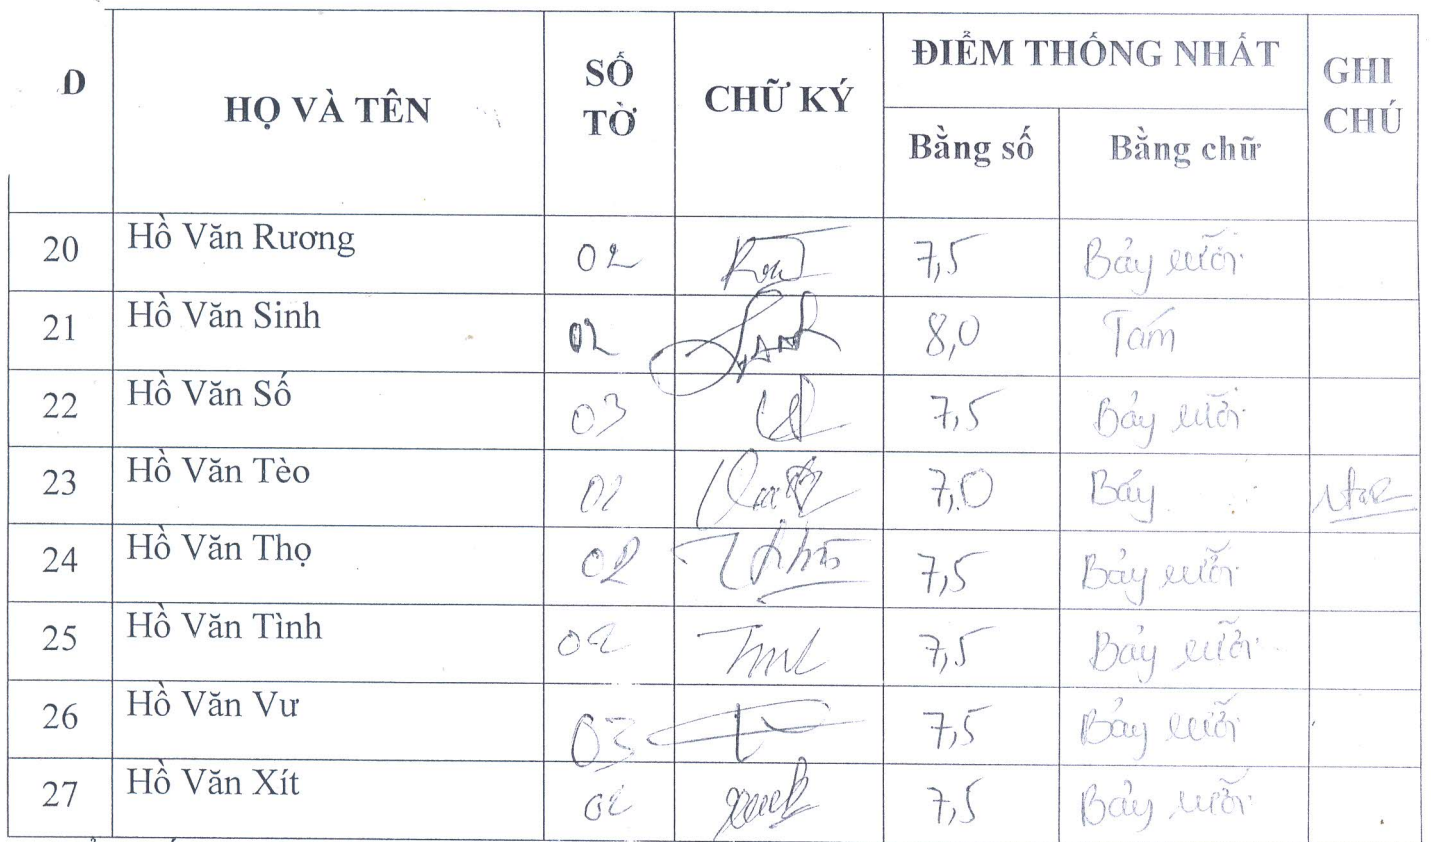 Đ HỌ VÀ TÊN SỐ TỜ CHỮ KÝ ĐIỂM THỐNG NHẤT GHI CHÚ
Bằng số Bằng chữ
20 Hồ Văn Rương 02 7,5 Bảy rưỡi
21 Hồ Văn Sinh 02 8,0 Tám
22 Hồ Văn Số 03 7,5 Bảy rưỡi
23 Hồ Văn Tèo 02 7,0 Bảy
24 Hồ Văn Thọ 02 7,5 Bảy rưỡi
25 Hồ Văn Tình 02 7,5 Bảy rưỡi
26 Hồ Văn Vư 03 7,5 Bảy rưỡi
27 Hồ Văn Xít 02 7,5 Bảy rưỡi